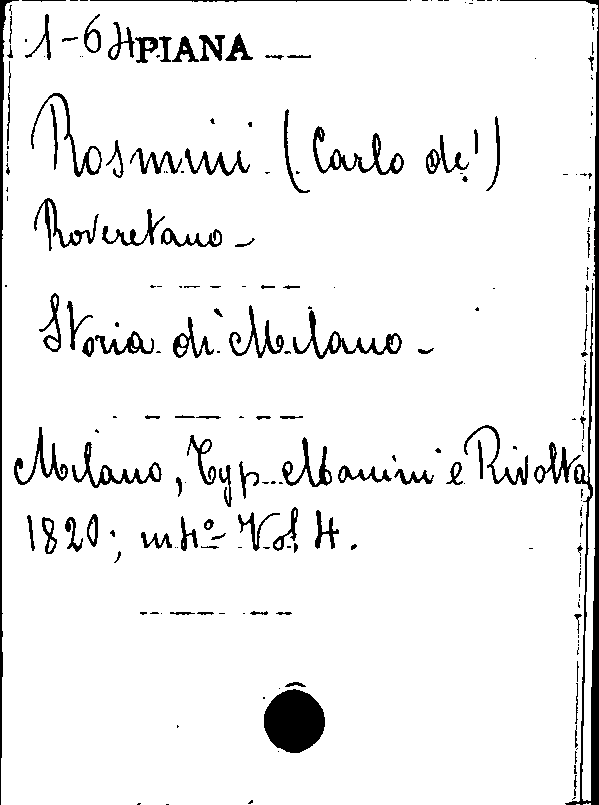 1-6 H PIANA
Rosmini (Carlo de')
Roveretano -
Storia di Milano -
Milano, Typ. Manini e Rivolta,
1820; in 4º- Vol. 4.